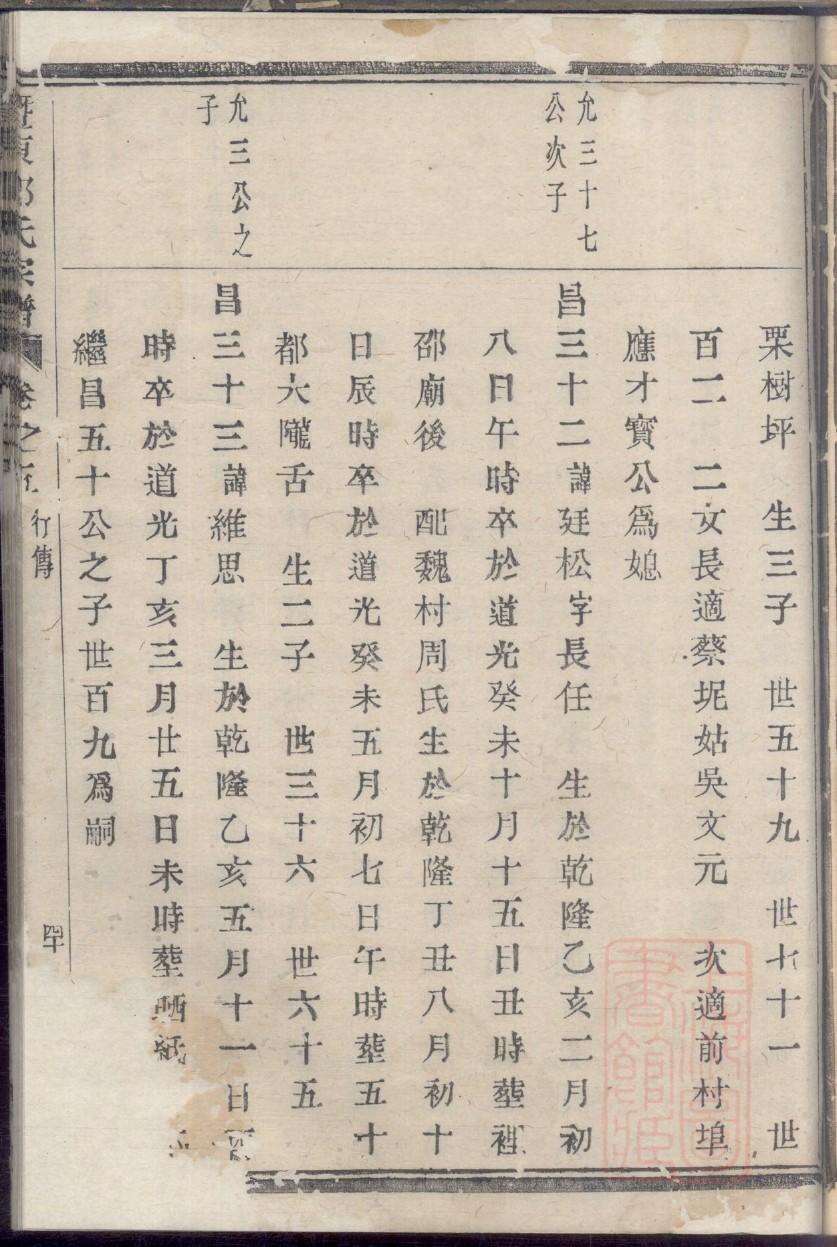 栗樹坪　生三子　世五十九　世七十一　世
百二　二女長適蔡坭姑吳文元　次適前村埠
應才寶公爲媳
允三十七
公次子
昌三十二諱廷松字長任　生於乾隆乙亥二月初
八日午時卒於道光癸未十月十五日丑時塟裡
邵廟後　配魏村周氏生於乾隆丁丑八月初十
日辰時卒於道光癸未五月初七日午時塟五十
都大隴舌　生二子　世三十六　世六十五
允三公之
子
昌三十三諱維思　生於乾隆乙亥五月十一日
時卒於道光丁亥三月廿五日未時塟晒紙
繼昌五十公之子世百九爲嗣
氏宗譜　卷之五　行傳　四十
上海圖書館藏